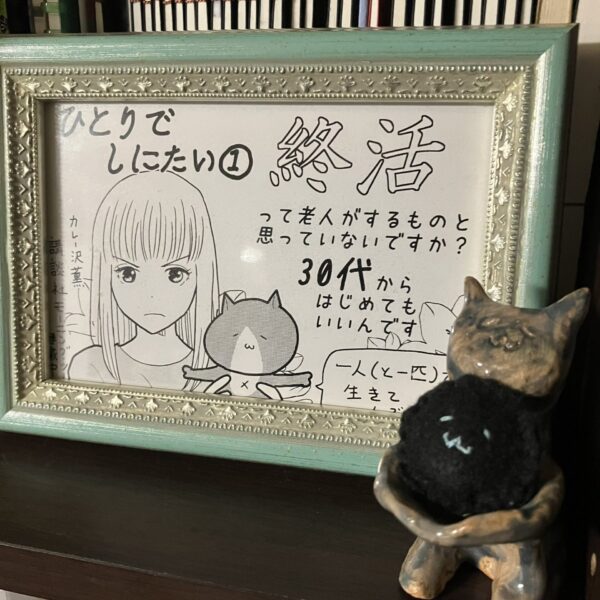 ひとりで
しにたい①
カレー沢薫
講談社モーニング
終活
って老人がするものと
思っていないですか?
30代から
はじめても
いいんです
一人(と一匹)
生きて